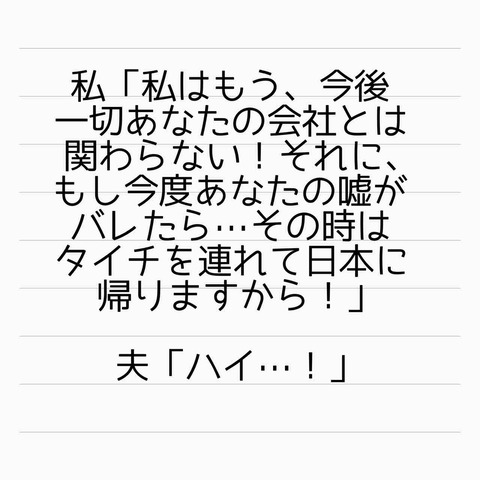 私「私はもう、今後
一切あなたの会社とは
関わらない！それに、
もし今度あなたの嘘が
バレたら…その時は
タイチを連れて日本に
帰りますから！」
夫「ハイ…！」